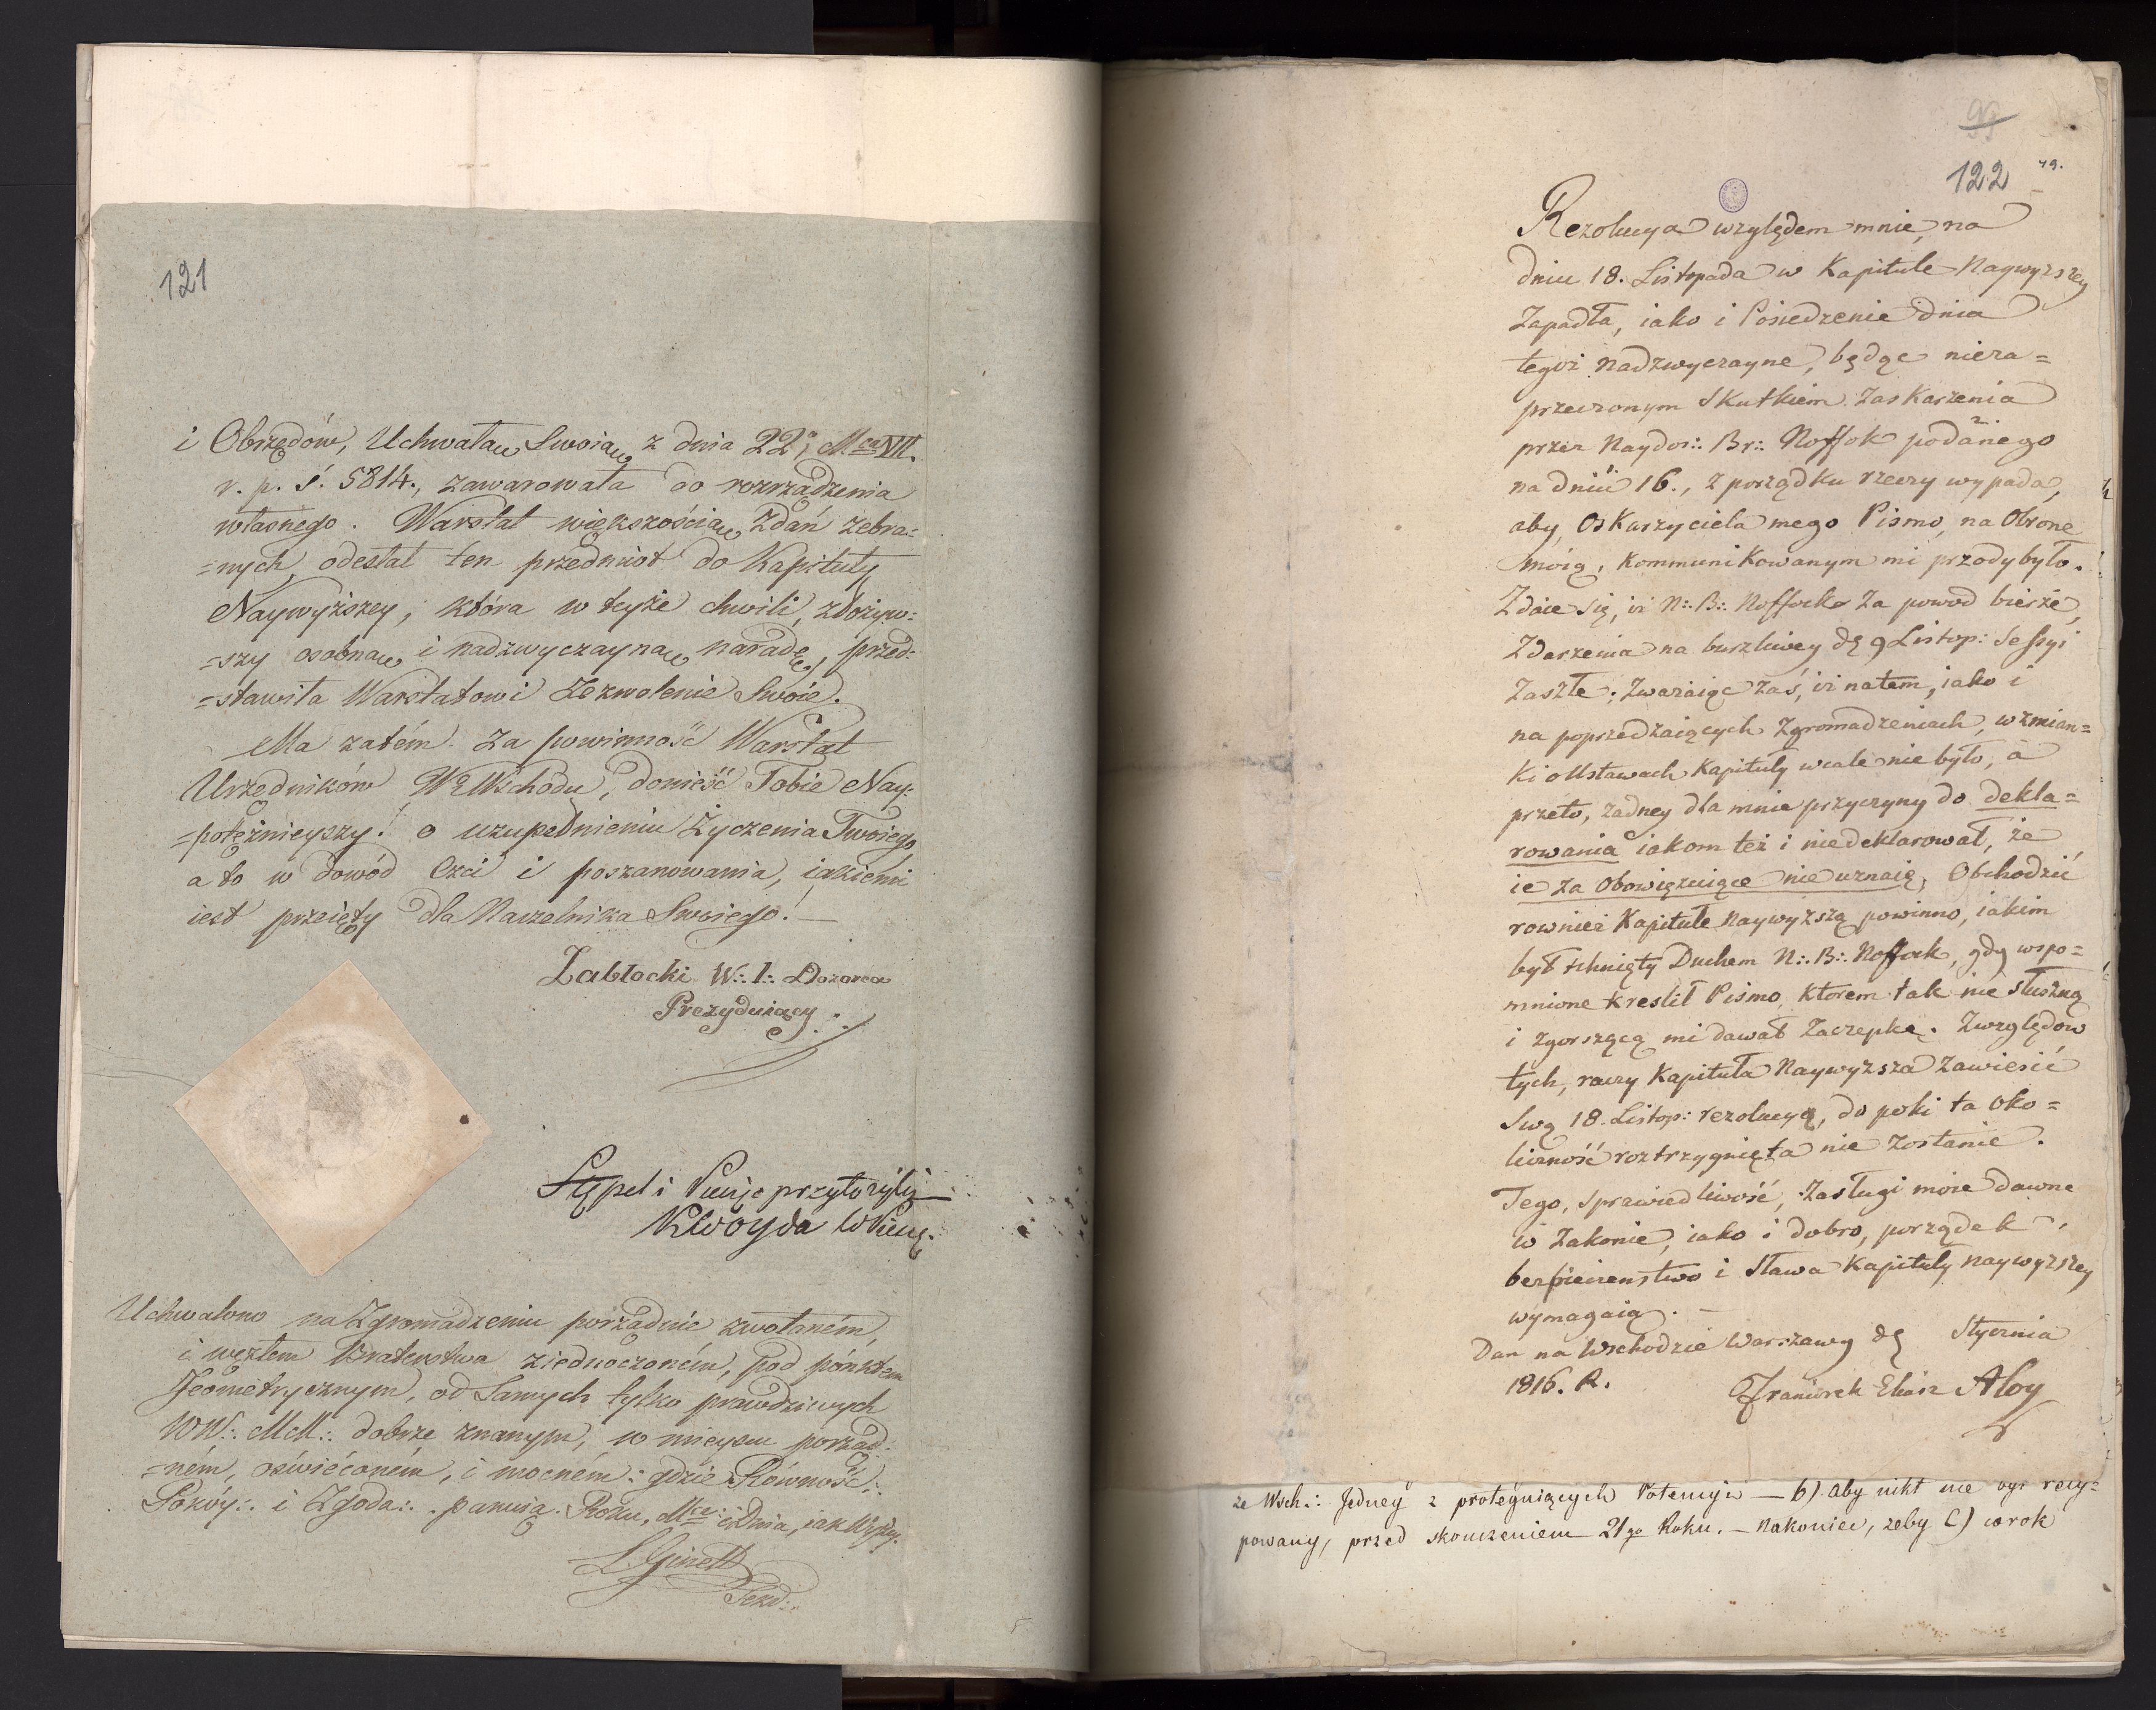 121
i Obrzędów, Uchwałą Swoią z dnia 22°, Mca VII.
r. p. ś. 5814., zawarowała do rozrządzenia
własnego. Warstat większością Zdań zebra=
=nych, odesłał ten przedmiot do Kapituły
Naywyższey, która w teyże chwili, złożyw:
=szy osobną i nadzwyczayną naradę, przed=
=stawiła Warstatowi Zezwolenie Swoie.
Ma zatém za powinność Warstat
Urzędników Wo Wschodu, donieść Tobie Nay:
=potężnieyszy! o uzupełnieniu Życzenia Twoiego
a to w dowód Czci i poszanowania, iakiemi
iest przeięty dla Naczelnika Swoiego! —
Zabłocki W∴ 1∴ Dozorca
Prezyduiący
Stępel i Pieczęć przyłożył
KWoyda WPiecz.
Uchwalono na Zgromadzeniu porządnie zwołaném,
i węzłem Braterstwa ziednoczoném, pod pónktem
Jeometrycznym, od Samych tylko prawdziwych
WW∴ MM∴ dobrze znanym, w mieyscu porząd:
=ném, oświéconém, i mocném: gdzie Równość∴
Pokóy∴ i Zgoda∴ panuią. Roku, Mca i Dnia, iak Wyżey.
L Ginett
Sekr∴
122
79.
Rezolucya względem mnie, na
dniu 18. Listopada w Kapitule Naywyzszey
Zapadła, iako i Posiedzenie dnia
tegoż nadzwyczayne, będąc nieza=
przeczonym Skutkiem Zaskarżenia
przez Naydos∴ Br∴ Noffok podanego
na dniu 16., z porządku rzeczy wypada,
aby, Oskarzyciela mego Pismo, na Obronę
moią, kommunikowanym mi przody było.
Zdaie się, iż N∴ B∴ Noffock za powod bierze,
Zdarzenia na burzliwey dę 9 Listop: Sessyi
Zaszłe; Zwazaiąc zaś, iż na tem, iako i
na poprzedzaiących Zgromadzeniach, wzmian=
ki o Ustawach Kapituły wcale nie było, a
przeto, zadney dla mnie przyczyny do dekla=
rowania iakom też i niedeklarował, że
ie za obowięzuiące nie uznaię, Obchodzić
rownież Kapitułę Naywyższą powinno, iakim
był tchnięty Duchem N∴ B∴ Noffock, gdy wspo=
mnione kreslił Pismo, ktorem tak nie słuszną
i zgorszącą mi dawał Zaczepkę. Zwzględow
tych, raczy Kapituła Naywyzsza Zawiesić
Swą 18. Listop: rezolucyą, do poki ta Oko=
liczność roztrzygnięta nie zostanie.
Tego, sprawiedliwość, Zasługi moie dawne
w Zakonie, iako i dobro, porządek,
bezpieczenstwo i Sława Kapituły naywyzszey
wymagaią. —
Dan na Wschodzie Warszawy dę Stycznia
1816. R.
Franciszek Eliasz Aloy
ze Wsch∴ Jedney z proteguiących Potencyi — b) aby nikt nie był recy=
powany, przed skonczeniem 21go Roku. — Nakoniec, zeby C) co rok